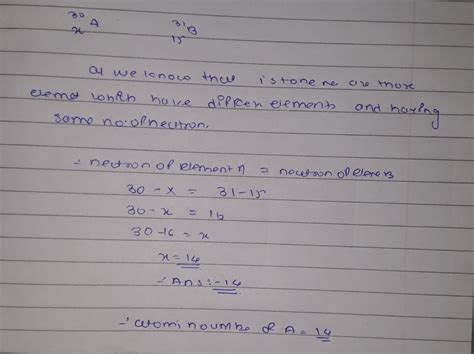 30 A 31 B
x 15
as we know that isotone are those
elemet which have differen elements and having
same no: of neutron.
∴ neutron of element A = neutron of elem B
30 - x = 31 - 15
30 - x = 16
30 - 16 = x
x = 14
∴ Ans :- 14
∴ atomi noumbe of A = 14